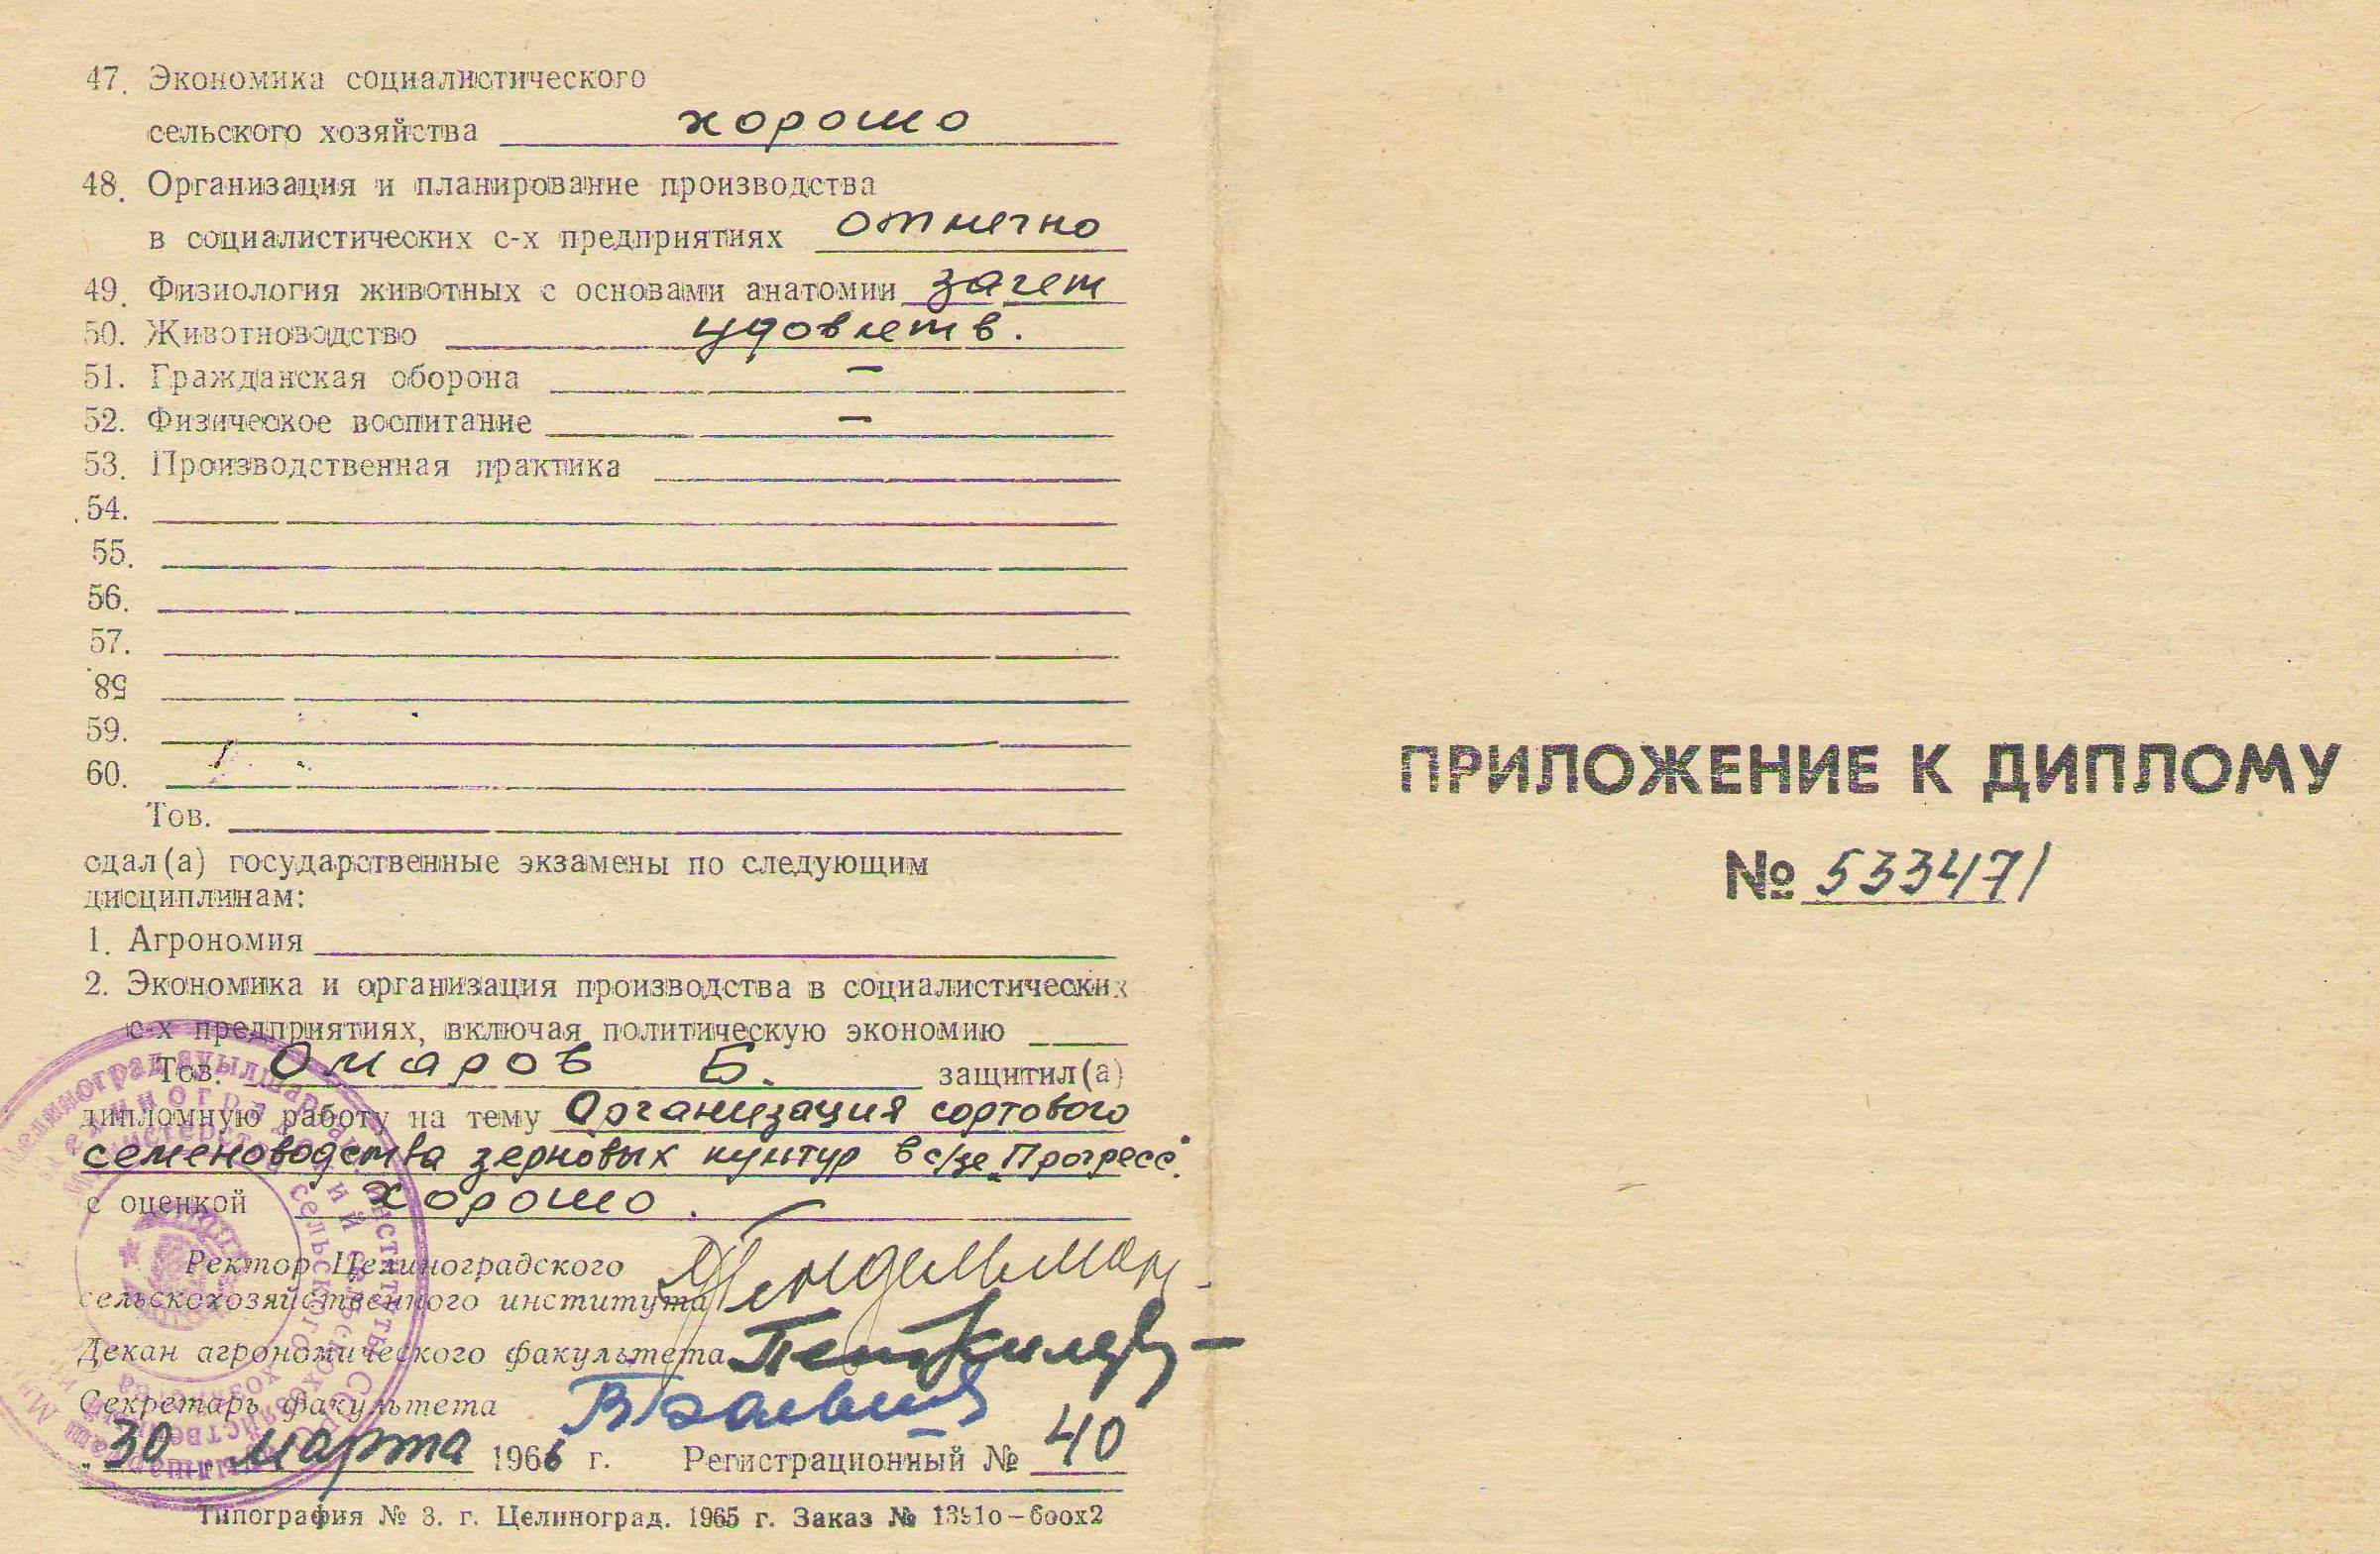 47. Экономика социалистического
сельского хозяйства хорошо
48. Организация и планирование производства
в социалистических с-х предприятиях отлично
49. Физиология животных с основами анатомии зачет
50. Животноводство удовлетв.
51. Гражданская оборона —
52. Физическое воспитание —
53. Производственная практика
54.
55.
56.
57.
58.
59.
60.
Тов.
сдал(а) государственные экзамены по следующим
дисциплинам:
1. Агрономия
2. Экономика и организация производства в социалистических
с-х предприятиях, включая политическую экономию
Тов. Омаров Б. защитил(а)
дипломную работу на тему Организация сортового
семеноводства зерновых культур в с/зе „Прогресс".
с оценкой хорошо.
Ректор Целиноградского
сельскохозяйственного института
Декан агрономического факультета
Секретарь факультета
„30„ марта 1966 г. Регистрационный № 40
Типография № 3. г. Целиноград. 1965 г. Заказ №
ПРИЛОЖЕНИЕ К ДИПЛОМУ
№ 533471